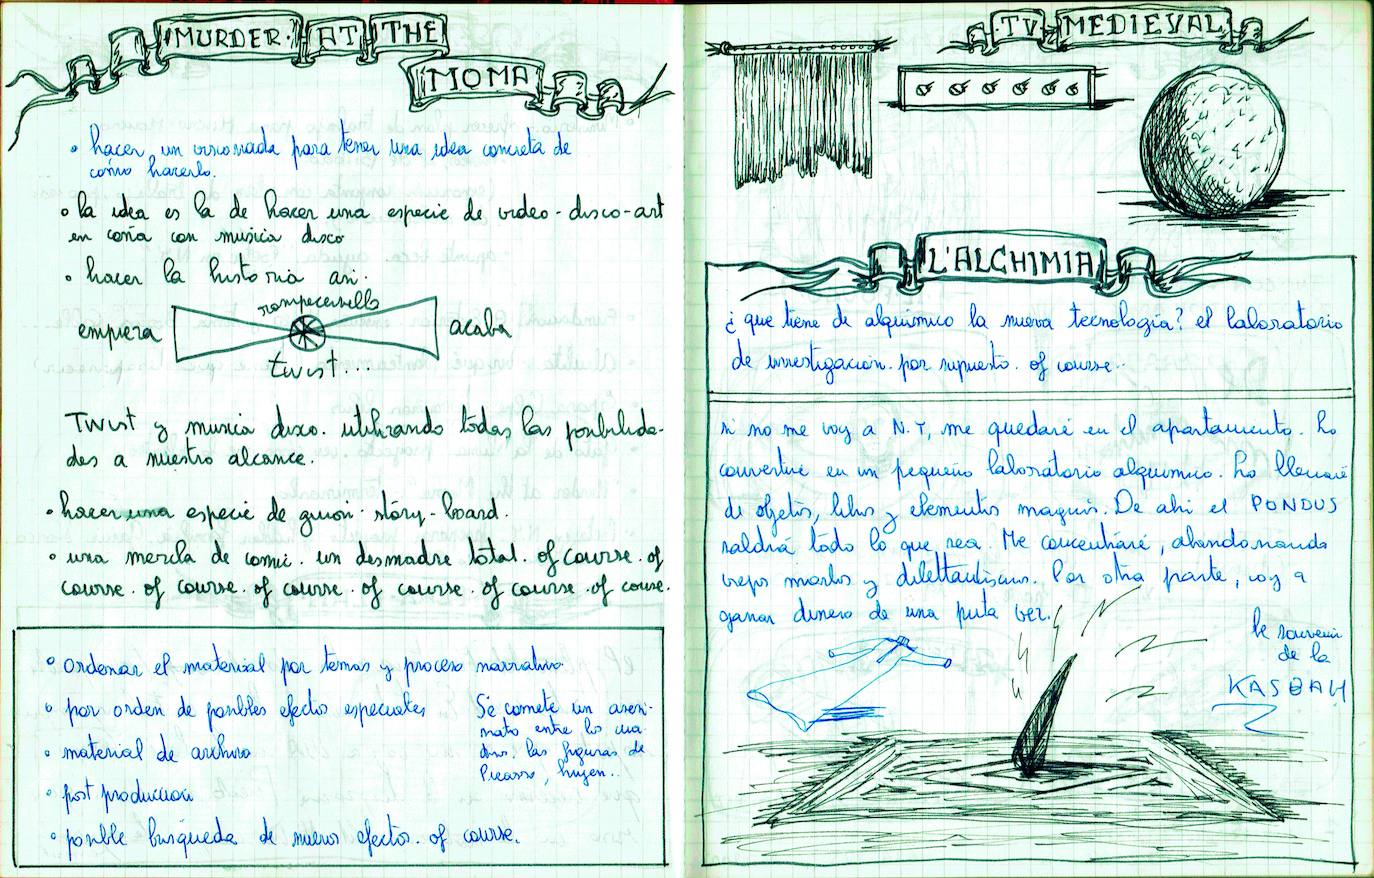 MURDER · AT THE
MOMA
• hacer un visionada para tener una idea concreta de
cómo hacerlo.
• la idea es la de hacer una especie de video-disco-art
en coña con musica disco
• hacer la historia asi.
rompecabello
empieza
acaba
twist...
Twist y musica disco. utilizando todas las posibilida-
des a nuestro alcance.
• hacer una especie de guion-story-board.
• una mezcla de comic. un desmadre total. of course. of
course. of course. of course. of course. of course. of course.
• ordenar el material por temas y proceso narrativo
• por orden de posibles efectos especiales
• material de archivo
• post produccion
• posible búsqueda de nuevos efectos. of course.
Sé comete un asesi-
nato entre los cua-
dros, las figuras de
Picasso, huyen..
· TV · MEDIEVAL
L'ALCHIMIA
¿que tiene de alquímico la nueva tecnología? el laboratorio
de investigación. por supuesto. of course..
si no me voy a N.Y, me quedaré en el apartamento. Lo
convertiré en un pequeño laboratorio alquimico. Lo llenaré
de objetos, libros y elementos magicos. De ahi el PONDUS
saldrá todo lo que sea. Me concentraré, abandonando
viejos y dilettantismo. Por otra parte, voy a
ganar dinero de una puta vez.
le souvenir
de la
KASBAH